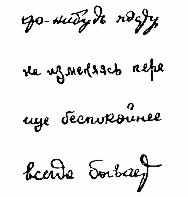 го-нибудь пойду
не изменяясь пере
ище беспокойнее
всегда бывает